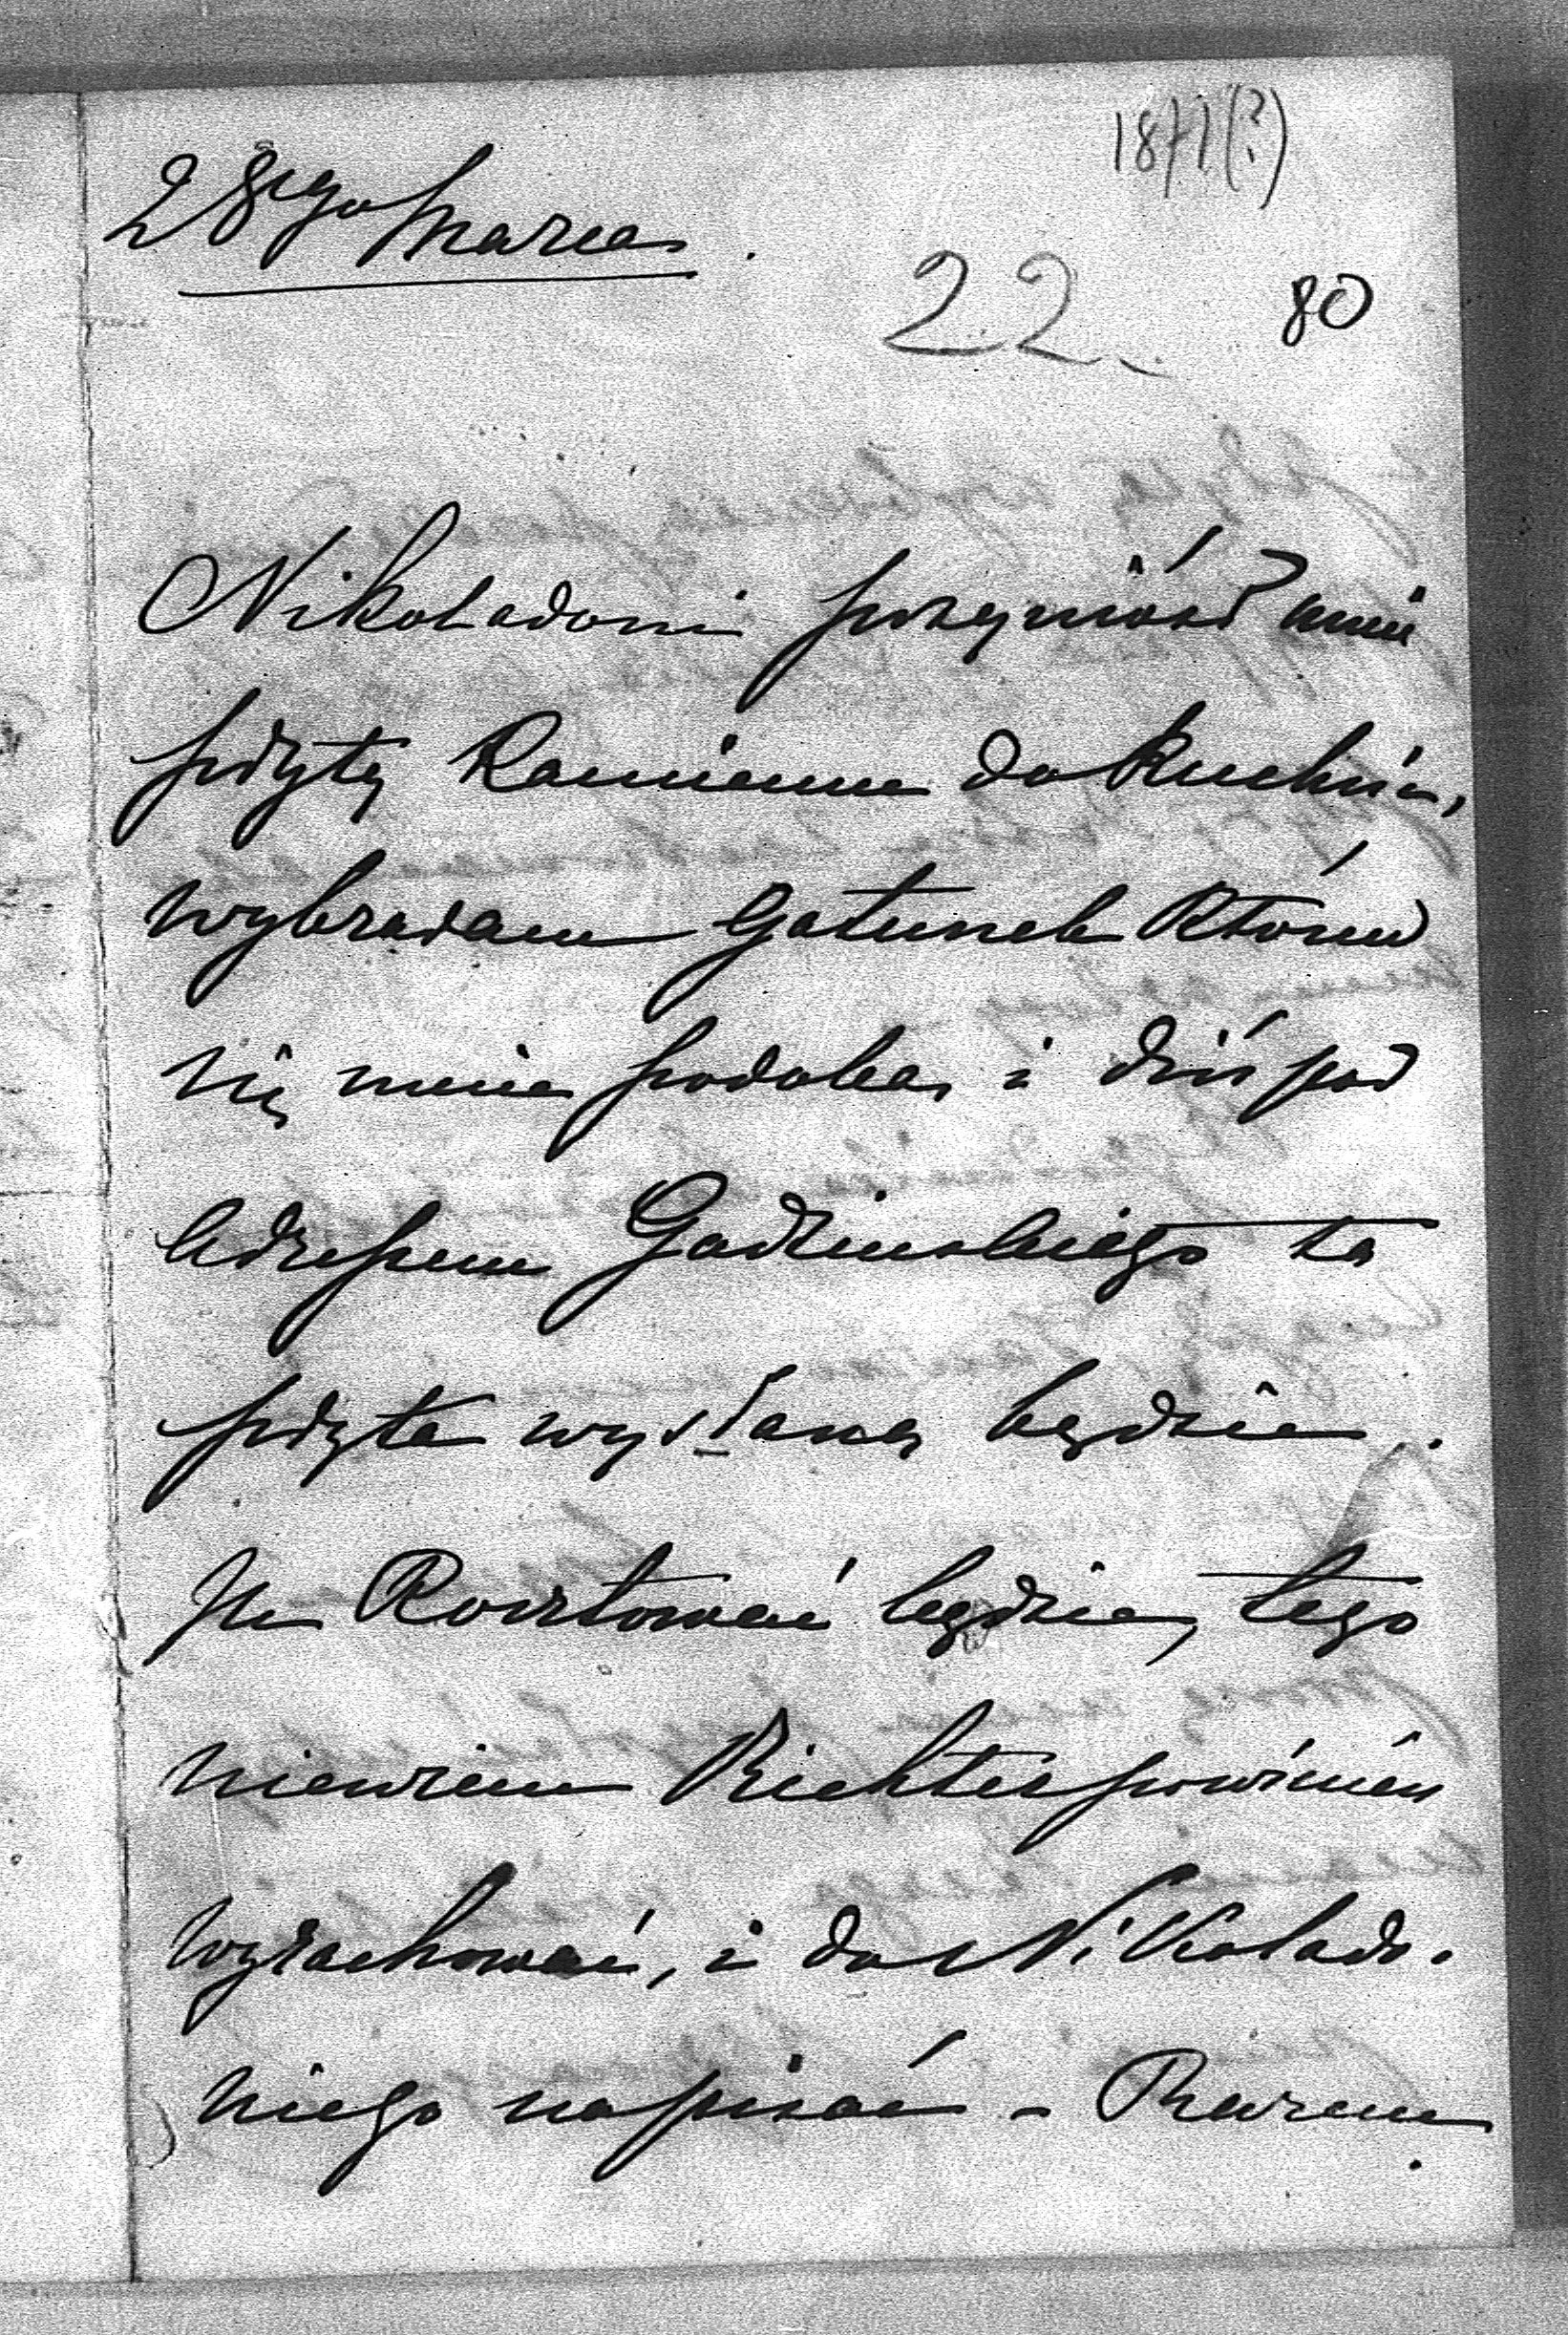 1871(?)
28go Marca.
22
80
Nikoladoni przyniósł mnie
płytę kamienne do kuchni,
wybrałam gatunek który
się mnie podoba i dziś pod
adressem Gadzinskiego ta
płyta wysłana będzie.
kosztować będzie, tego
niewiem Richter powinien
wyrachować, i do Nikolado-
niego napisać -